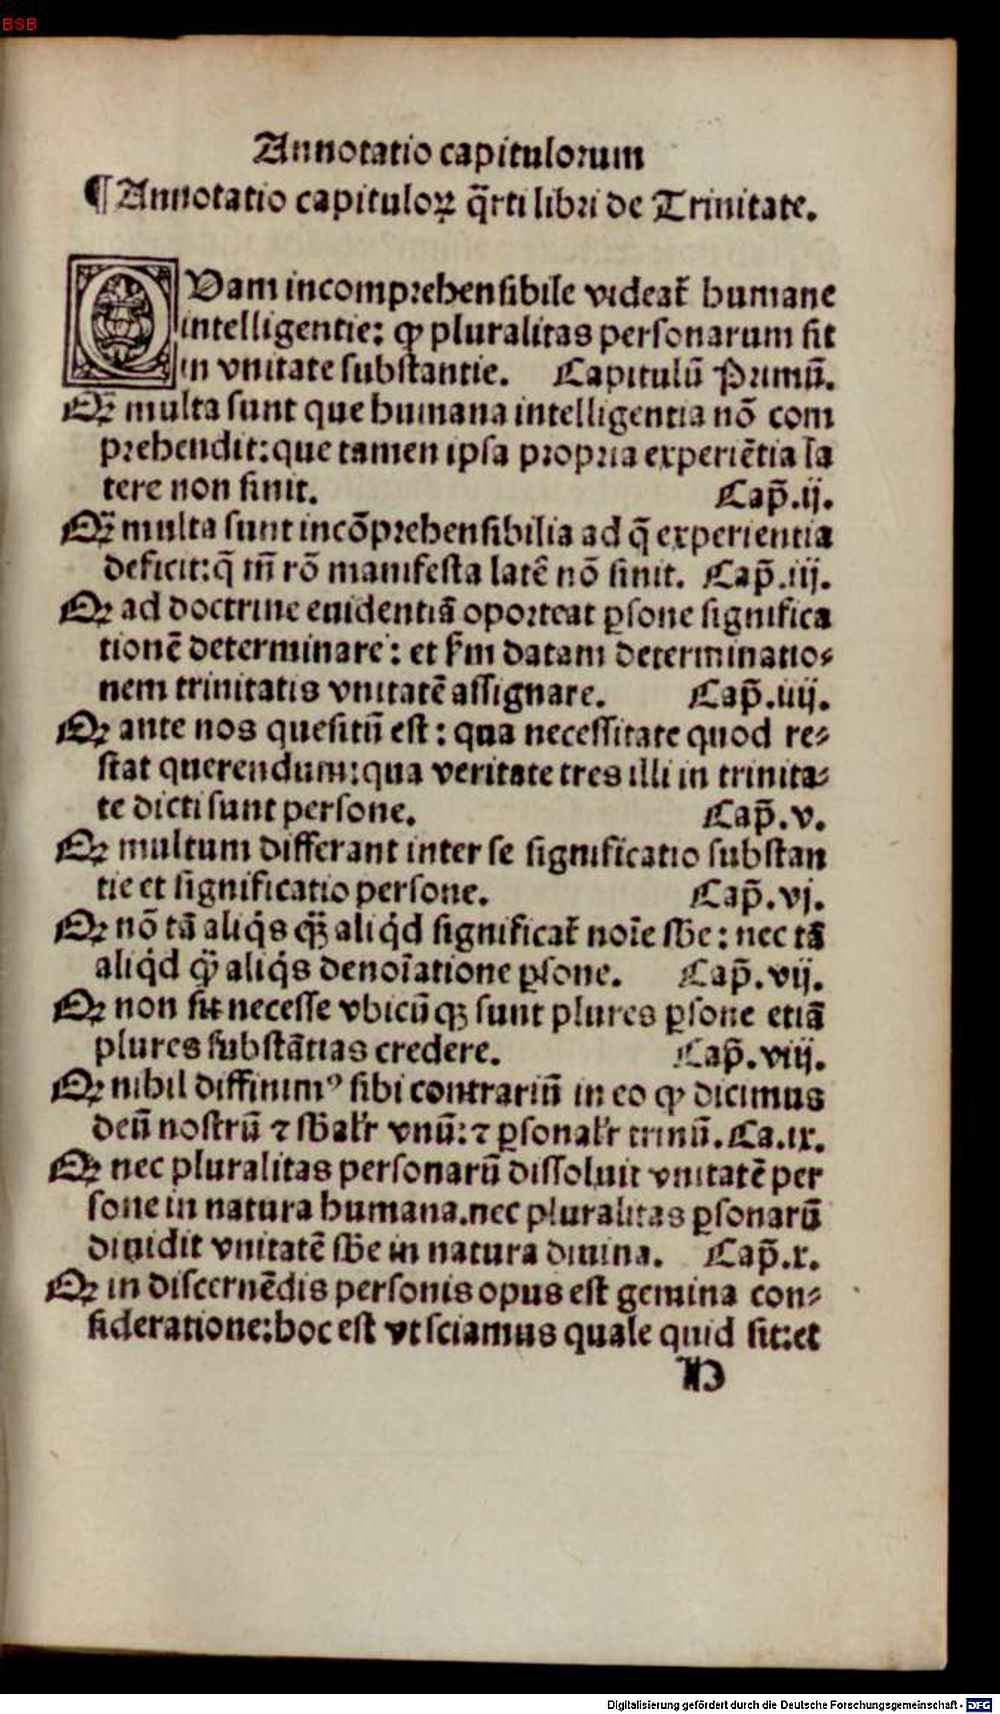 BSB
Annotatio capitulorum
¶ Annotatio capituloꝝ q̄rti libri de Trinitate.
QVam incomprehensibile videat̄ humane
intelligentie: ꝙ pluralitas personarum sit
in vnitate substantie. Capitulū Primū.
Qꝛ multa sunt que humana intelligentia nō com
prehendit: que tamen ipsa propria experiētia la
tere non sinit. Cap̄.ij.
Qꝛ multa sunt incōprehensibilia ad q̄ experientia
deficit: q̄ tn̄ rō manifesta latē nō sinit. Cap̄.iij.
Qꝛ ad doctrine euidentiā oporteat ꝑsone significa
tionē determinare: et ẜm datam determinatio⸗
nem trinitatis vnitatē assignare. Cap̄.iiij.
Qꝛ ante nos quesitū est: qua necessitate quod re⸗
stat querendum: qua veritate tres illi in trinita⸗
te dicti sunt persone. Cap̄.v.
Qꝛ multum differant inter se significatio substan
tie et significatio persone. Cap̄.vj.
Qꝛ nō tā aliq̇s qꝫ̄ aliq̇d significat̄ noīe sb̄e: nec tā
aliq̇d ꝙ̄ aliq̇s denoīatione ꝑsone. Cap̄.vij.
Qꝛ non sit necesse vbicūqꝫ sunt plures ꝑsone etiā
plures substātias credere. Cap̄.viij.
Qꝛ nihil diffinimꝰ sibi contrariū in eo ꝙ dicimus
deū nostrū ⁊ sb̄al̄r vnū: ⁊ ꝑsonal̄r trinū. Ca.ix.
Qꝛ nec pluralitas personarū dissoluit vnitatē per
sone in natura humana. nec pluralitas ꝑsonarū
diuidit vnitatē sb̄e in natura diuina. Cap̄.x.
Qꝛ in discernēdis personis opus est gemina con⸗
sideratione: hoc est vt sciamus quale quid sit: et
D
Digitalisierung gefördert durch die Deutsche Forschungsgemeinschaft - DFG